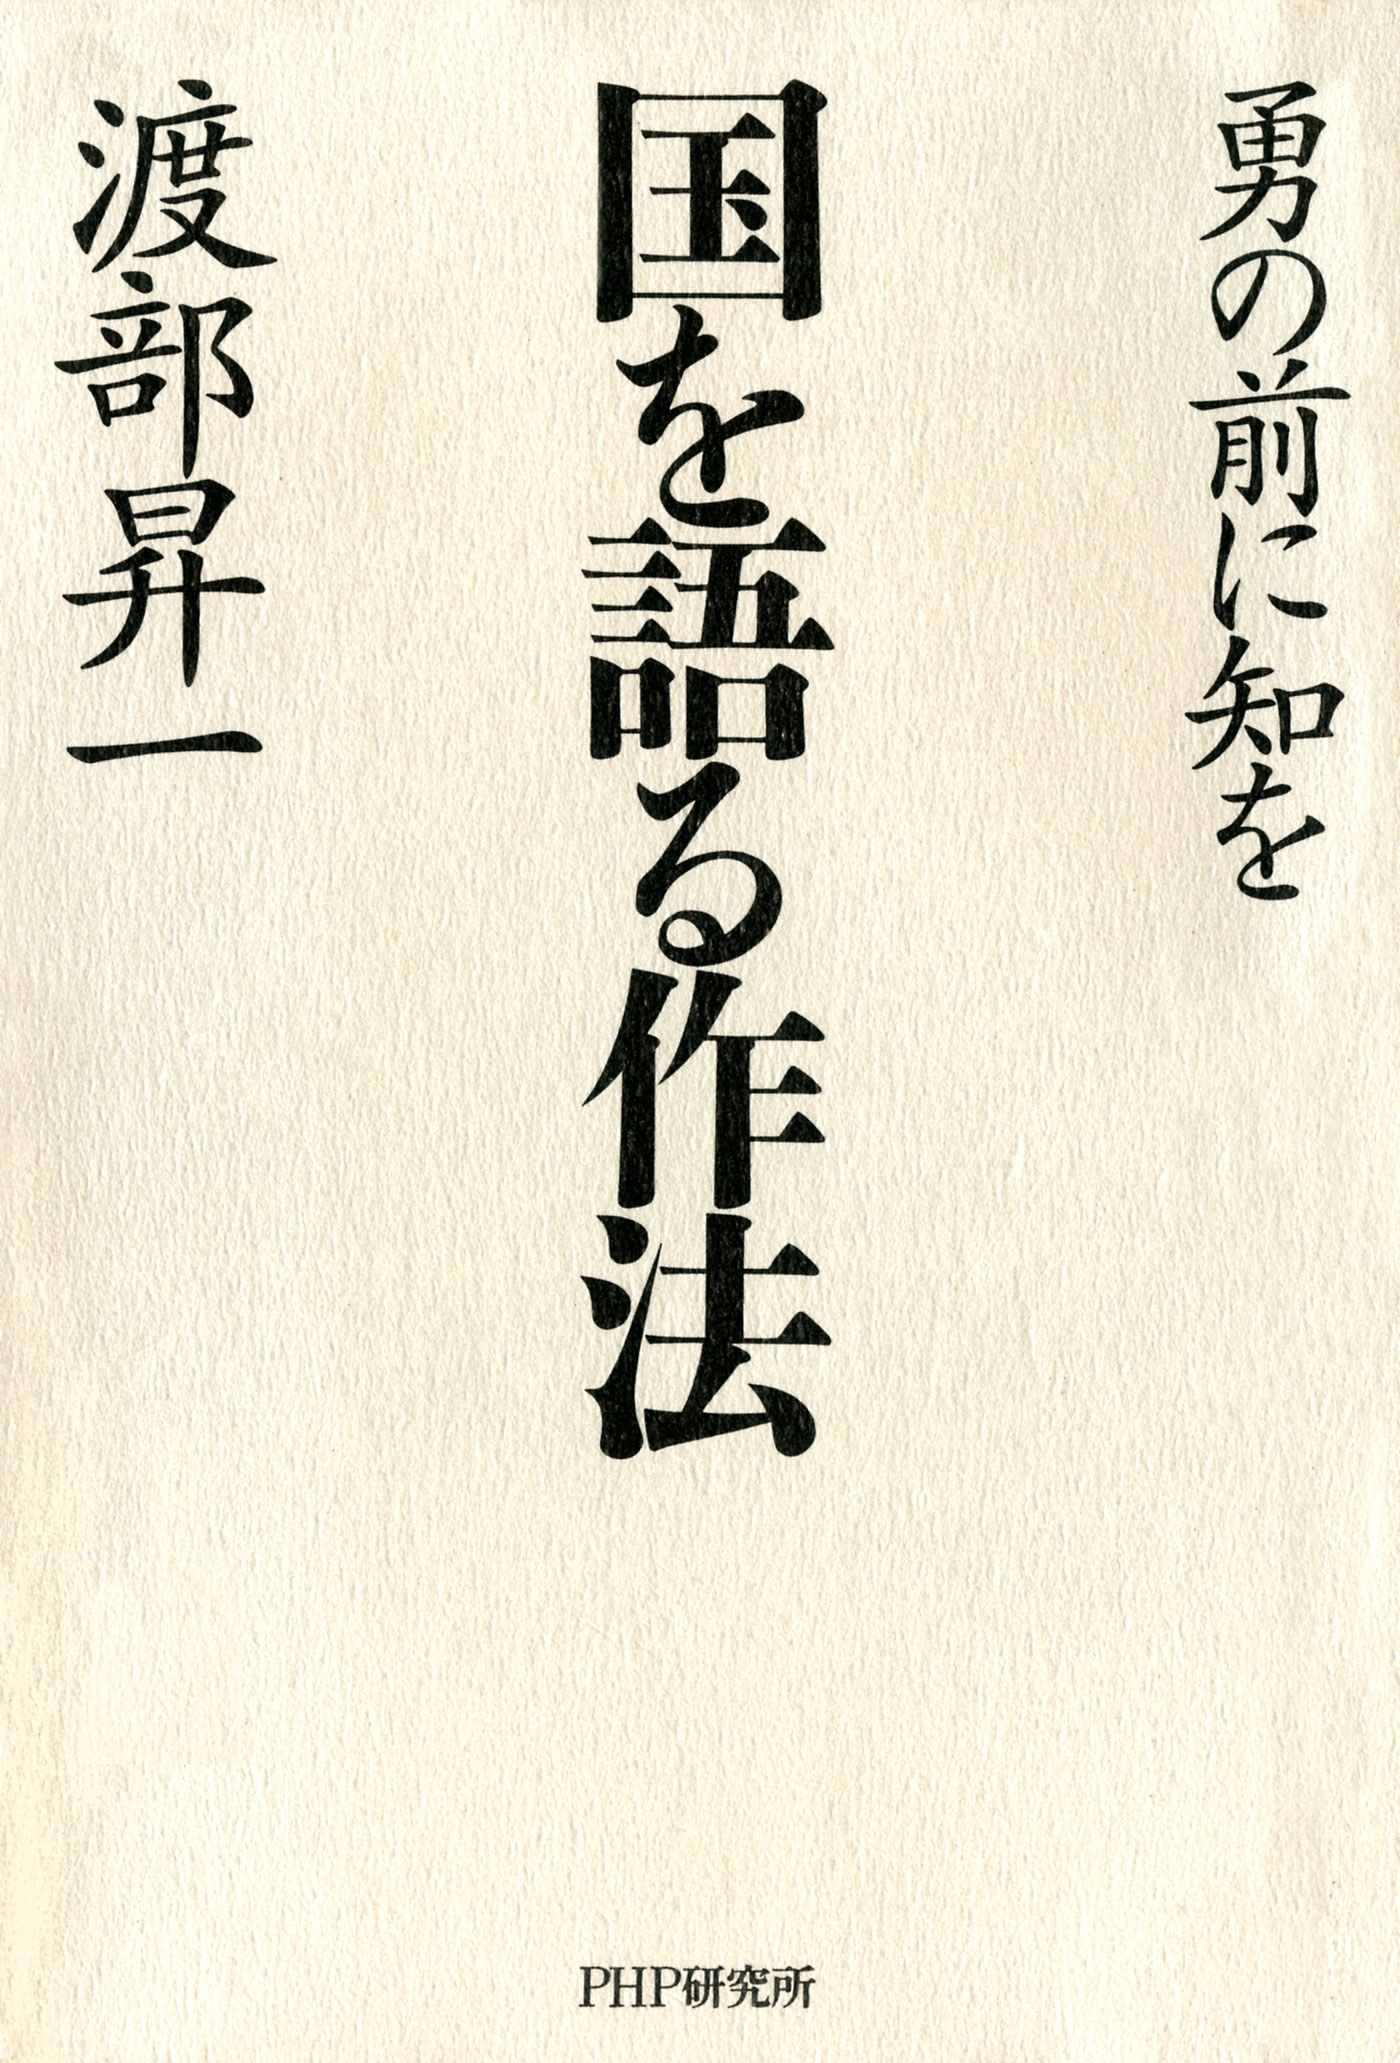 勇の前に知を
国を語る作法
渡部昇一
PHP研究所